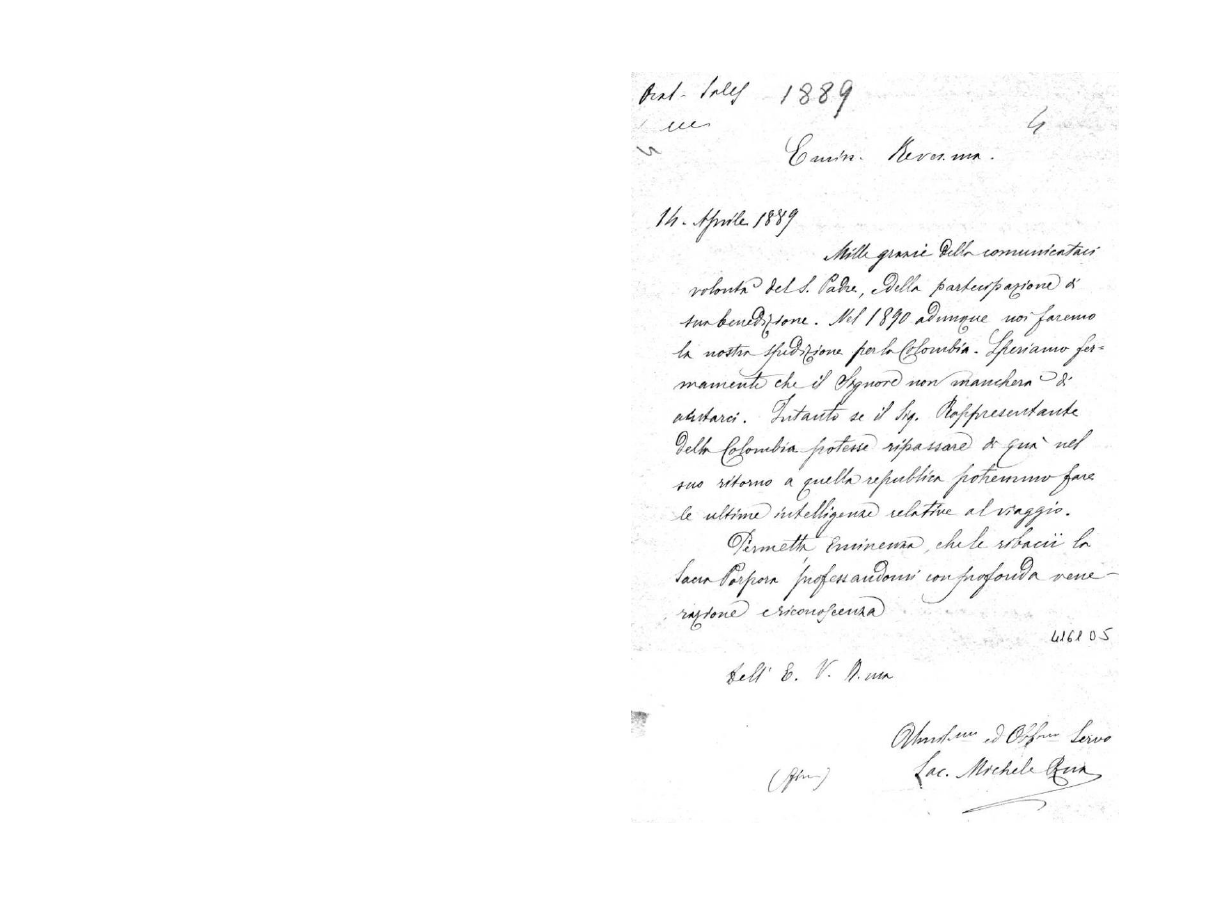 Orat. Sales 1889
4
Emin. Rever.ma.
14. Aprile 1889
Mille grazie della comunicataci
volontà del S. Padre, e della partecipazione di
sua benedizione. Nel 1890 adunque noi faremo
la nostra spedizione per la Colombia. Speriamo fer=
mamente che il Signore non mancherà di
aiutarci. Intanto se il Sig. Rappresentante
della Colombia potesse ripassare di quà nel
suo ritorno a quella repubblica potremmo fare
le ultime intelligenze relative al viaggio.
Permetta Eminenza, che le ribacii la
Sacra Porpora professandomi con profonda vene-
razione e riconoscenza
dell' E. V. R.ma
ed Servo
Sac. Michele Rua